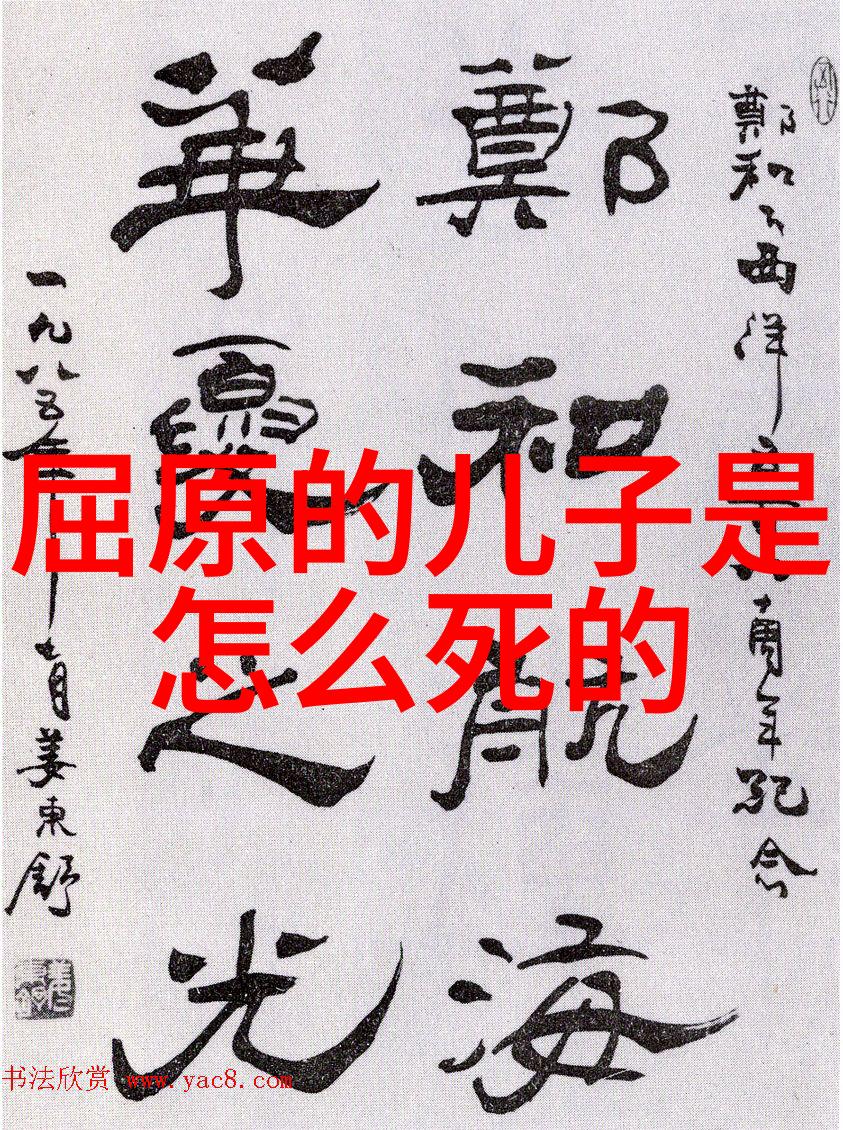 屈原的儿子是
怎么死的
鄭和下西洋五百八十周年紀念
鄭和航海
華夏之光
一九八五年七月姜東舒
书法欣赏 www.yac8.com